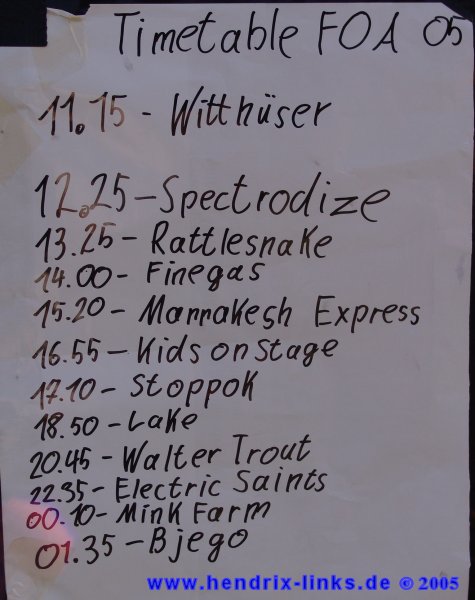 Timetable FOA 05
11.15 - Witthüser
12.25 - Spectrodize
13.25 - Rattlesnake
14.00 - Finegas
15.20 - Marrakesh Express
16.55 - Kids on Stage
17.10 - Stoppok
18.50 - Lake
20.45 - Walter Trout
22.35 - Electric Saints
00.10 - Mink Farm
01.35 - Bjego
www.hendrix-links.de © 2005